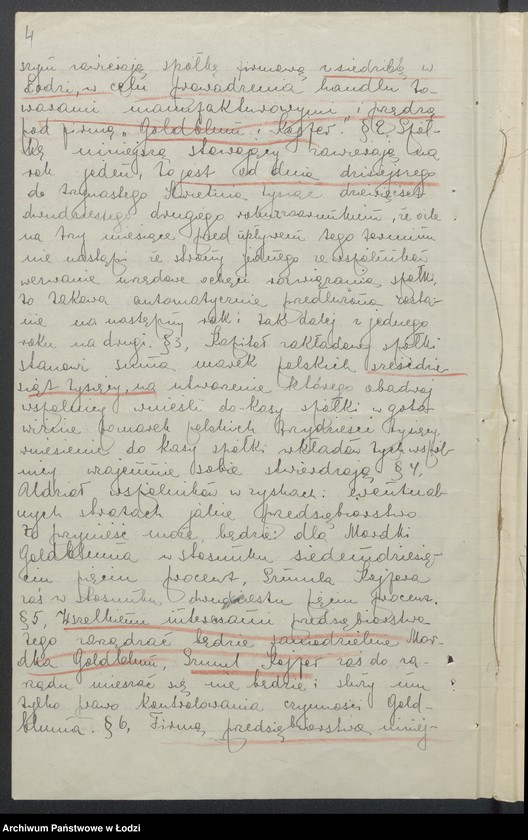 4
szym zawierają spółkę firmową z siedzibą w
Łodzi, w celu prowadzenia handlu to-
warami manufakturowymi i przędzą
pod firmą "Goldblum i Kajfer". § 2, Spół-
kę niniejszą stawający zawierają na
rok jeden, to jest od dnia dzisiejszego
do trzynastego Kwietnia tysiąc dziewięćset
dwudziestego drugiego roku z warunkiem, że o ile
na trzy miesiące przed upływem tego terminu
nie nastąpi ze strony jednego ze wspólników
wezwanie urzędowe celem rozwiązania spółki,
to takowa automatycznie przedłużona zosta-
nie na następny rok i tak dalej z jednego
roku na drugi. § 3, Kapitał zakładowy spółki
stanowi suma marek polskich sześćdzie-
siąt tysięcy, na utworzenie którego obadwaj
wspólnicy wnieśli do kasy spółki w goto-
wiźnie po marek polskich trzydzieści tysięcy
wniesienie do kasy spółki wkładów tych wspól-
nicy wzajemnie sobie stwierdzają § 4,
Udział wspólników w zyskach i ewentual-
nych stratach jakie przedsiębiorstwo
to przynieść może, będzie: dla Mordki
Goldbluma w stosunku siedemdziesię-
ciu pięciu procent, Szmula Kajfera
zaś w stosunku dwudziestu pięciu procent.
§ 5, Wszelkiemi interesami przedsiębiorstwa
tego zarządzać będzie samodzielnie Mor-
dka Goldblum, Szmul Kajfer zaś do za-
rządu mieszać się nie będzie i służy mu
tylko prawo kontrolowania czynności Gold-
bluma. § 6, Firmę przedsiębiorstwa niniej-
Archiwum Państwowe w Łodzi